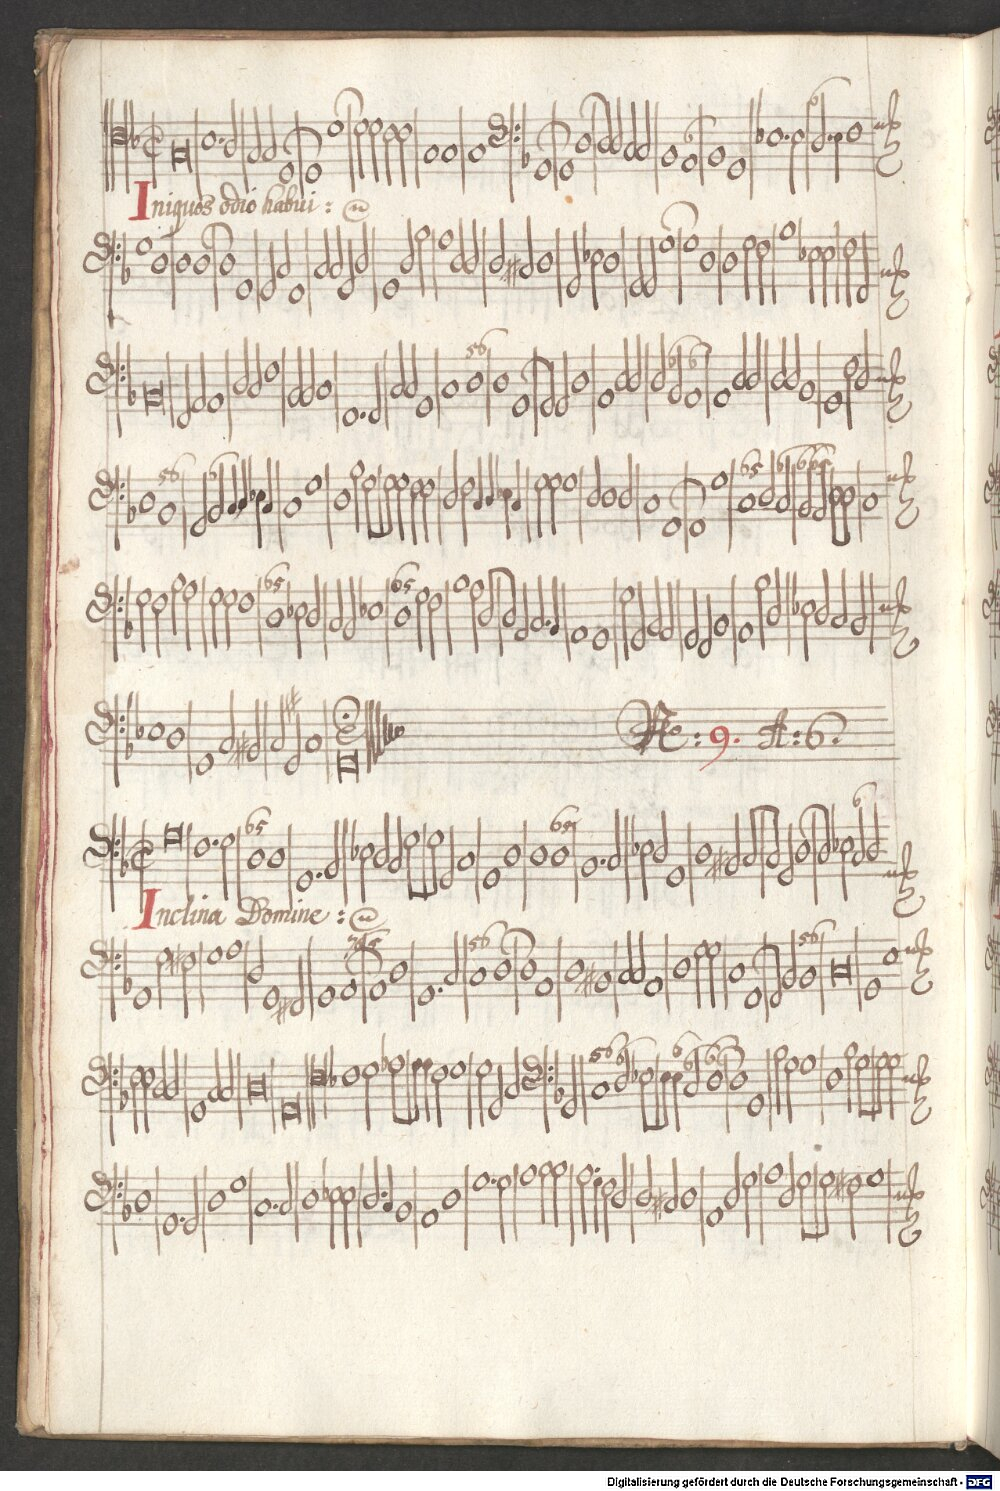 Iniquos odio habui :
56
6
56
6
65
65
65
Re : 9. A : 6.
65
6
Inclina Domine :
56
56
56
Digitalisierung gefördert durch die Deutsche Forschungsgemeinschaft - DFG